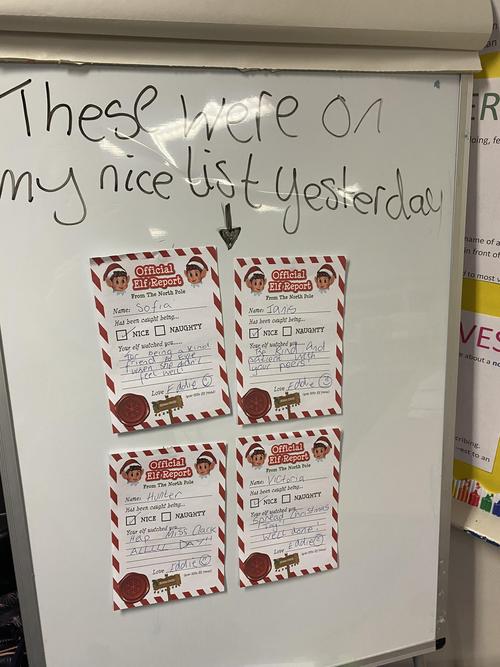 These were on
my nice list yesterday
Official
Elf Report
From The North Pole
Name: Sofia
Has been caught being...
NICE NAUGHTY
Your elf watched you...
for being a kind
friend to
when she didn't
feel well!
Love Eddie
(your little Elf friend)
Official
Elf Report
From The North Pole
Name: Janis
Has been caught being...
NICE NAUGHTY
Your elf watched you...
Be kind and
patient with
your peers
Love Eddie
(your little Elf friend)
Official
Elf Report
From The North Pole
Name: Hunter
Has been caught being...
NICE NAUGHTY
Your elf watched you...
Help Miss Clack
ALLLLL DAY!!
Love Eddie
(your little Elf friend)
Official
Elf Report
From The North Pole
Name: Victoria
Has been caught being...
NICE NAUGHTY
Your elf watched you...
Spread Christmas
Joy
Well done!
Love Eddie
(your little Elf friend)
ER
oing, fe
name of a
in front of
d to most v
VES
e about a no
cribing.
est to an